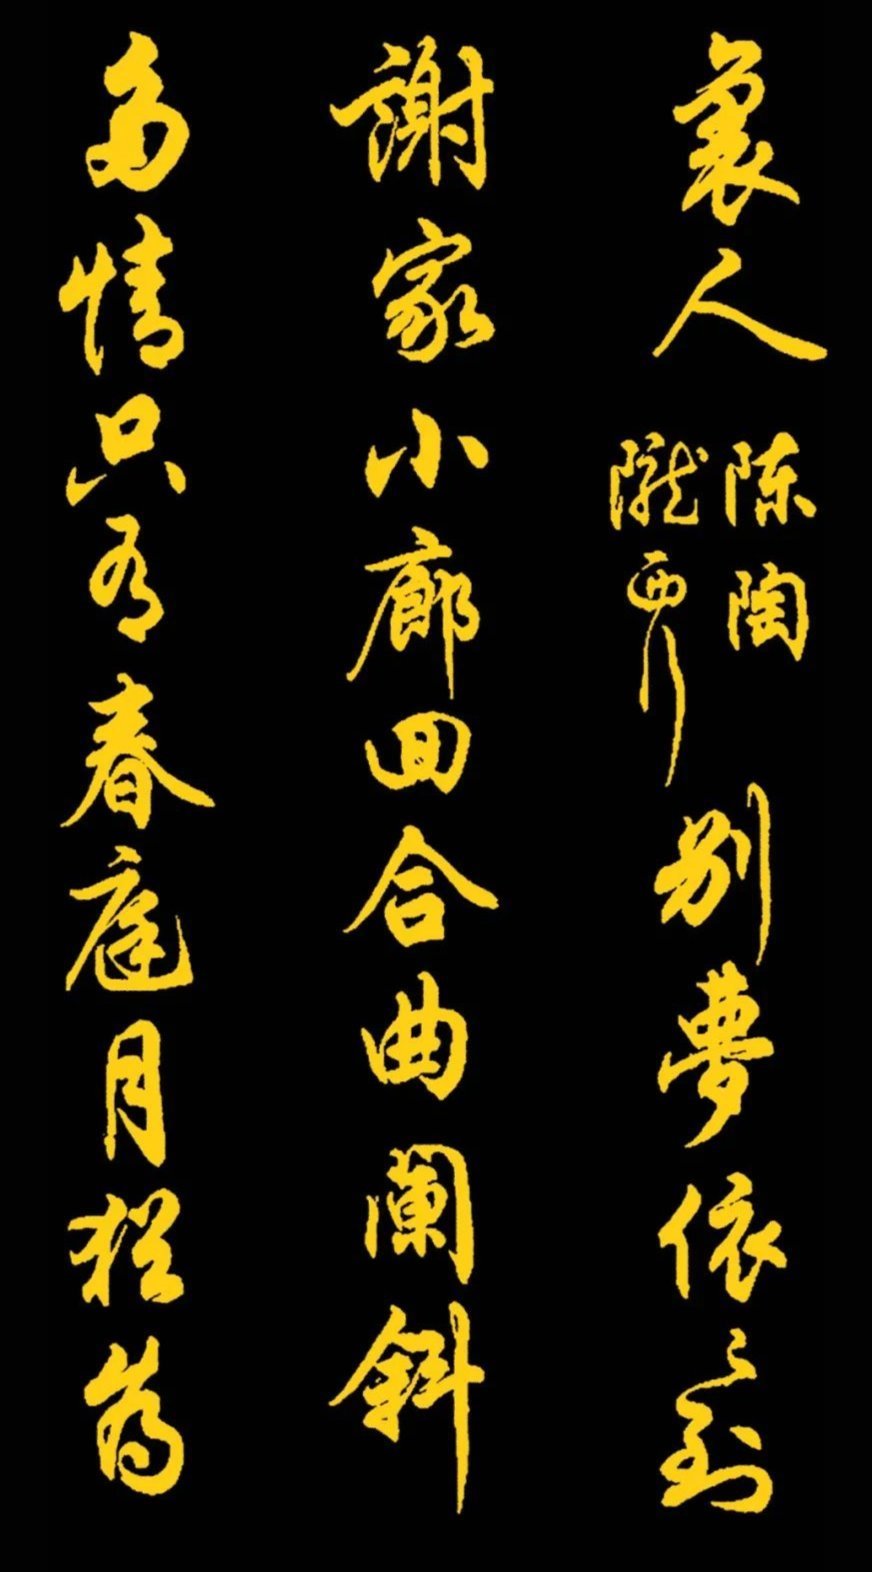 裏人
陈陶
陇西行
别夢依〻到
謝家小廊回合曲阑斜
多情只有春庭月猶為